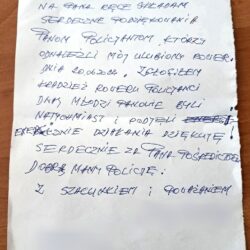 NA PANA RĘCE SKŁADAM
SERDECZNE PODZIĘKOWANIA
PANOM POLICJANTOM, KTÓRZY
ODNALEŹLI MÓJ ULUBIONY ROWER.
DNIA ZGŁOSIŁEM
KRADZIEŻ ROWERU POLICJANCI
DWAJ MŁODZI PANOWIE BYLI
NATYCHMIAST I PODJĘLI
ENERGICZNIE DZIAŁANIA DZIĘKUJĘ!
SERDECZNIE ZA PANA POŚREDNICTWEM
DOBRĄ MAMY POLICJĘ.
Z SZACUNKIEM I POWAŻANIEM